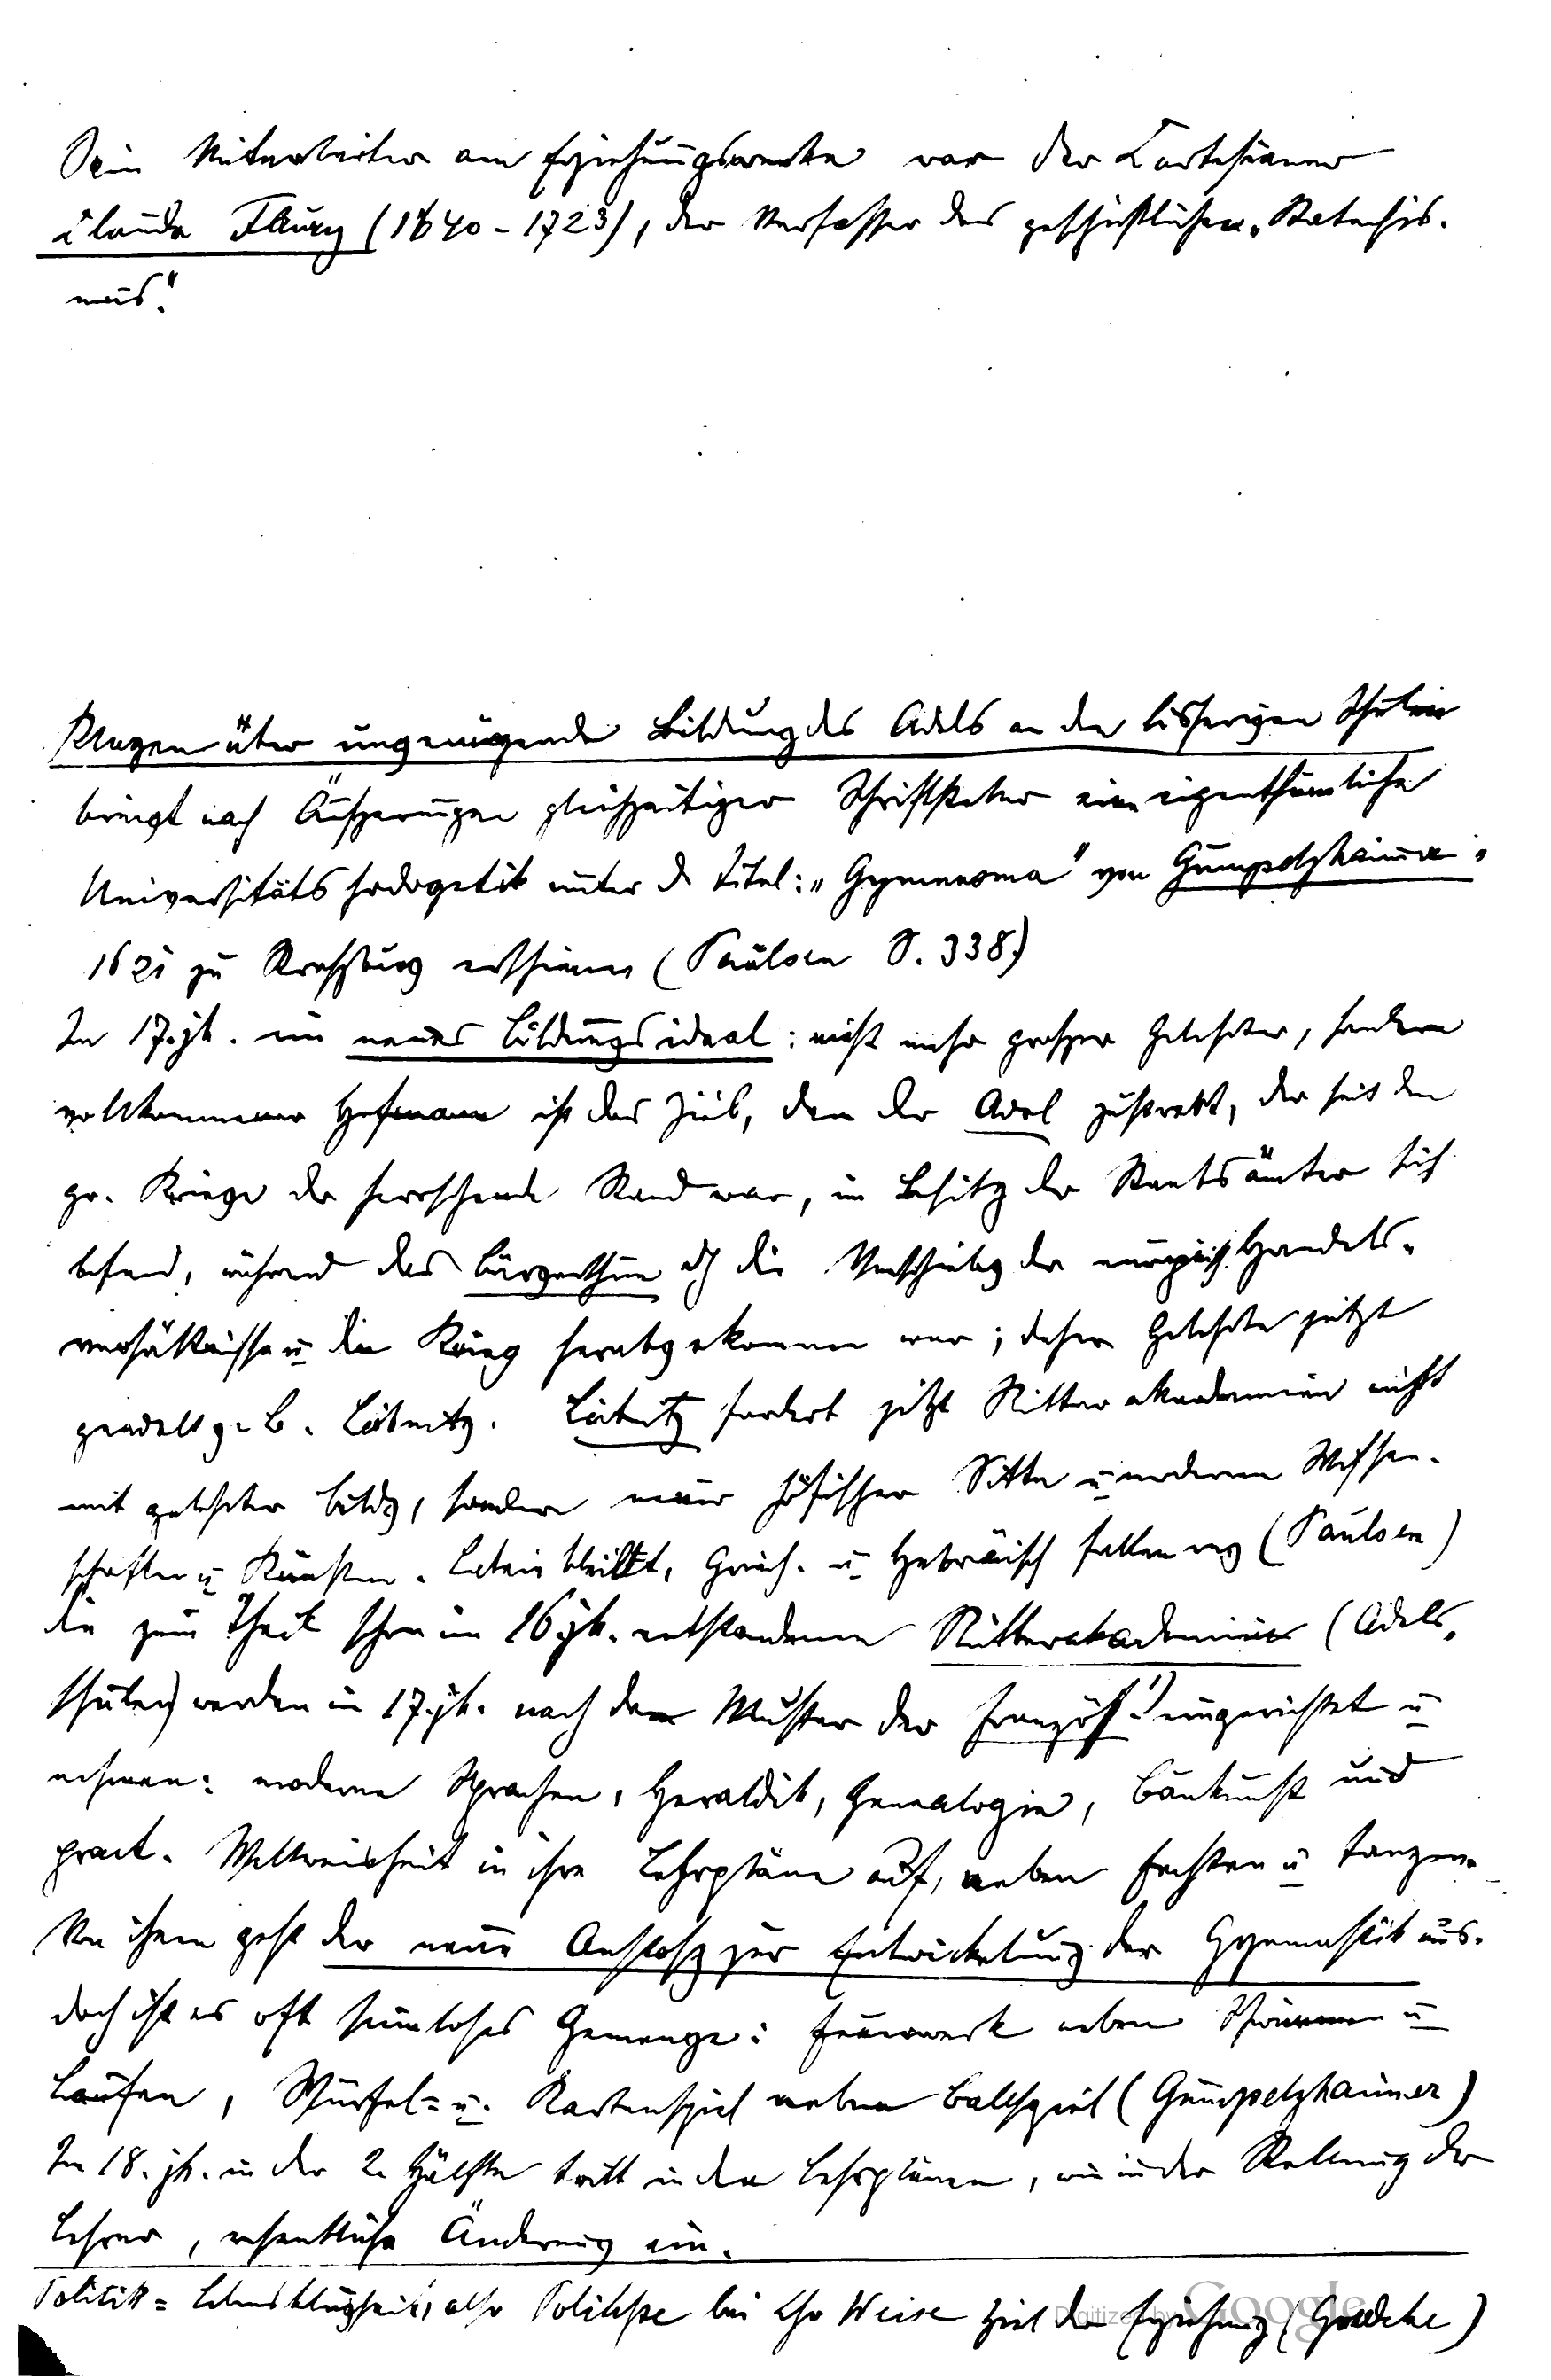 Sein Mitarbeiter am Erziehungswerke war der Cartesianer
Claude Fleury (1640-1723), der Verfasser des geschichtlichen „Katechis-
mus".
Klagen über ungenügende Bildung des Adels an den bisherigen Schulen
bringt nach Äußerungen gleichzeitiger Schriftsteller eine eigenthümliche
Universitätshodogetik unter d. Titel: „Gymnasma" von Gumpelzhaimer
1621 zu Straßburg erschienen (Paulsen S. 338)
Im 17. jh. ein neues Bildungsideal: nicht mehr großer Gelehrter, sondern
vollkommener Hofmann ist das Ziel, dem der Adel zustrebt, der seit dem
gr. Kriege der herrschende Stand war, im Besitz der Staatsämter sich
befand, während das Bürgerthum dch die Verschiebg der europäisch. Handels-
verhältnisse u den Krieg herabgekommen war; daher Gelehrte jetzt
geadelt z. B. Leibnitz. Leibnitz fordert jetzt Ritterakademien nicht
mit gelehrter Bildg, sondern mit höfischer Sitte u modernen Wissen-
schaften u Künsten. Latein bleibt, Griech. u Hebräisch fallen weg (Paulsen)
Die zum Theil schon im 16 jh. entstandenen Ritterakademien (Adels-
schulen) werden im 17. jh. nach dem Muster der französ. 1) eingerichtet u
nehmen: moderne Sprachen, Heraldik, Genealogie, Baukunst und
pract. Weltweisheit in ihre Lehrpläne auf, neben Fechten u Tanzen.
Von ihnen geht der neue Anstoß zur Entwickelung der Gymnastik aus.
doch ist es oft sinnloses Gemenge: Feuerwerk neben Schwimmen u
Laufen, Würfel- u. Kartenspiel neben Ballspiel (Gumpelzhaimer)
Im 18. jh. in der 2. Hälfte tritt in den Lehrplänen, wie in der Stellung der
Lehrer, wesentliche Änderung ein.
Politik = Lebensklugheit, also Politesse bei Chr Weise Ziel der Erziehung (Goedeke)
Digitized by Google